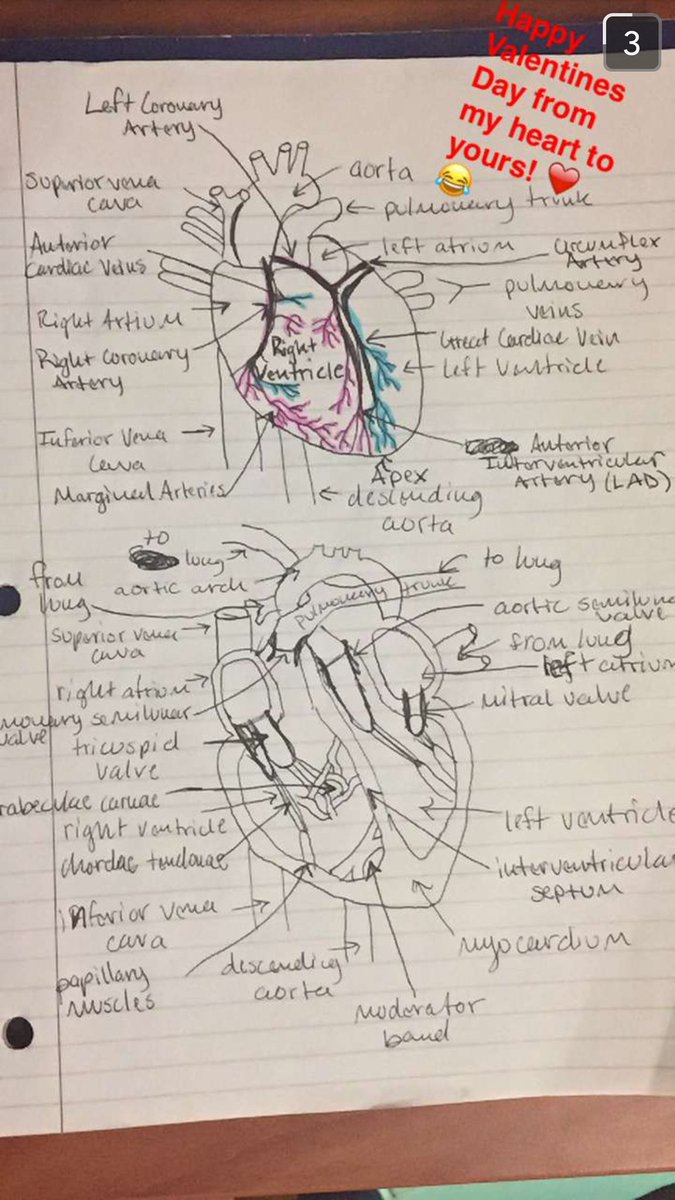 Happy
Valentines
Day from
my heart to
yours! 😂 ❤️
3
Left Coronary
Artery
aorta
Superior vena
cava
pulmonary trunk
Anterior
Cardiac Veins
left atrium
Circumflex
Artery
pulmonary
veins
Right Artium
Great Cardiac Vein
Right Coronary
Artery
Right
Ventricle
Left Ventricle
Inferior Vena
Cava
Anterior
Interventricular
Artery (LAD)
Marginal Arteries
Apex
descending
aorta
to
lung
aortic arch
to lung
from
lung
pulmonary trunk
aortic semiluna
valve
superior vena
cava
from lung
left atrium
right atrium
monary semilunar
valve
mitral valve
tricuspid
valve
rabeculae carnae
left ventricle
right ventricle
chordae tendonae
interventricular
septum
inferior vena
cava
myocardium
papillary
muscles
descending
aorta
moderator
band